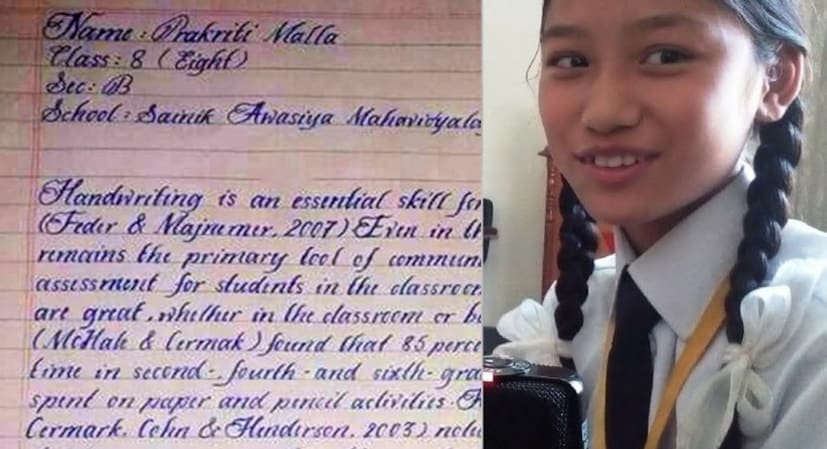 Name : Prakriti Malla
Class : 8 (Eight)
Sec : B
School : Sainik Awasiya Mahavidyala
Handwriting is an essential skill for
(Feder & Majnemer, 2007) Even in th
remains the primary tool of commun
assessment for students in the classroom
are great, whether in the classroom or b
(McHale & Cermak) found that 85 perce
time in second-, fourth-and sixth-gra
spent on paper and pencil activities.
Cermark, Cohn & Henderson, 2003) note